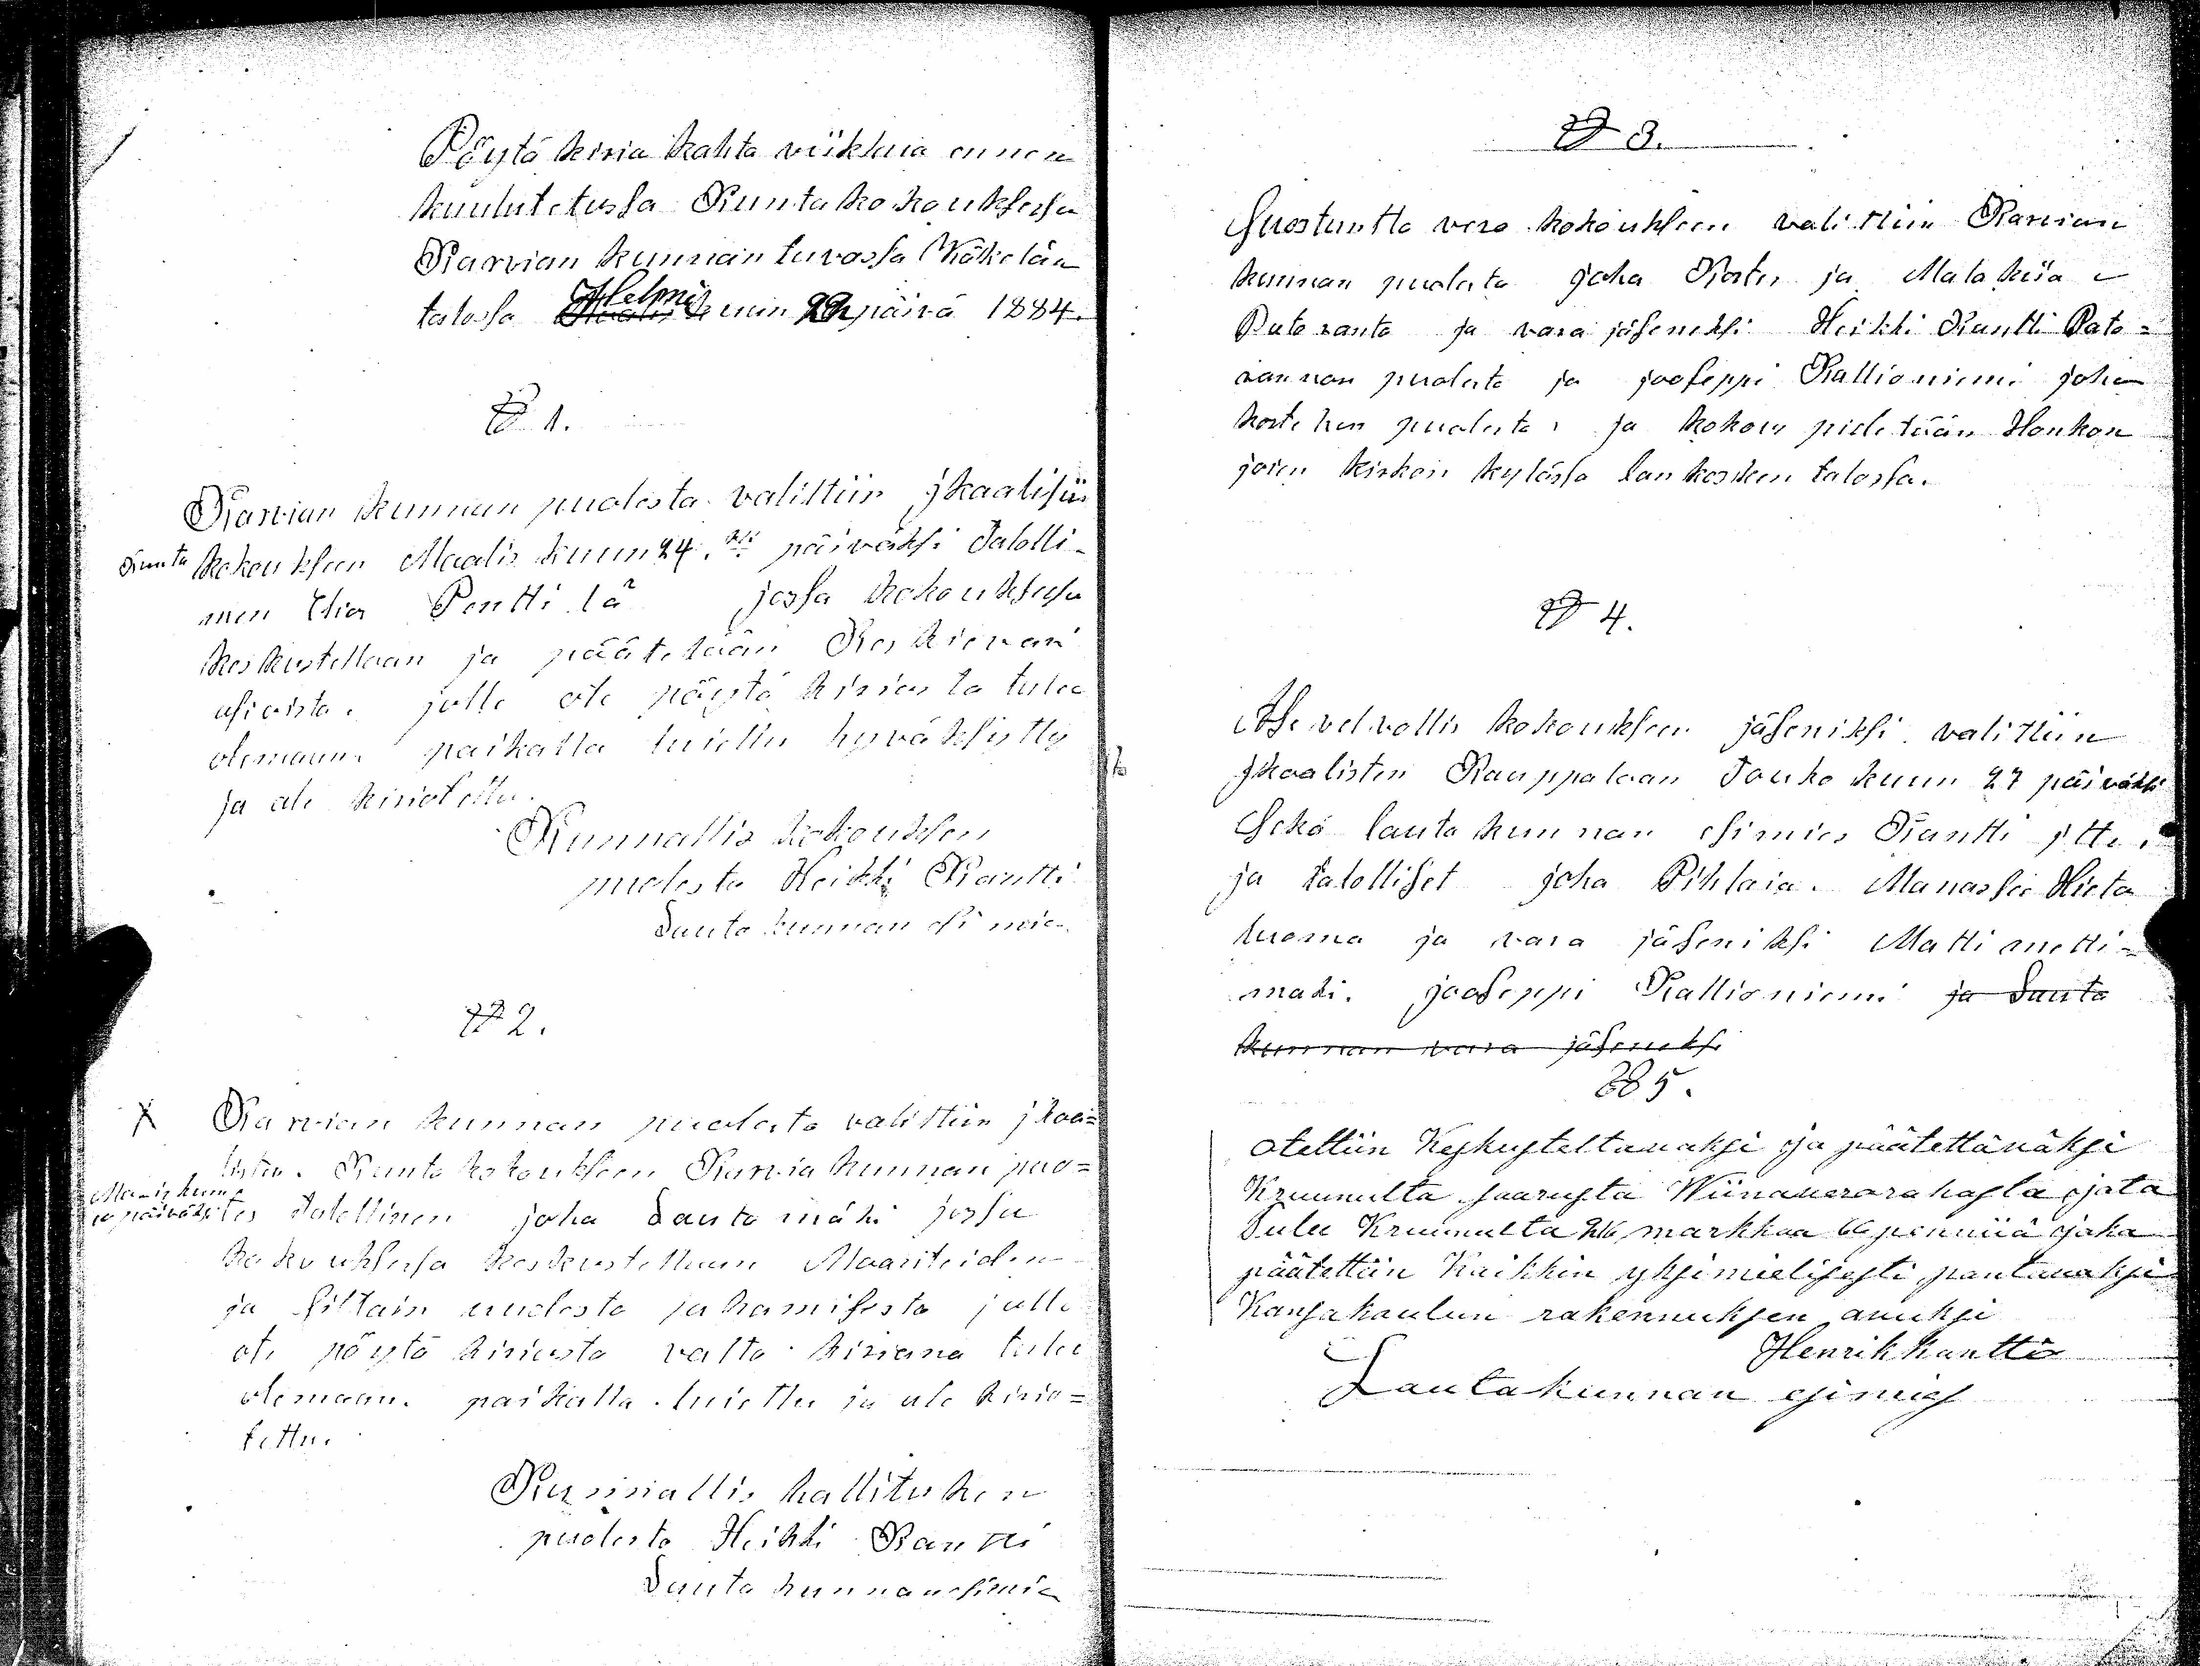 Pöytä kiria kahta viikkua ennen
kuulutetussa Kunta kokouksessa
Karvian kunnan tuvassa Käkelän
talossa Helmi kuun 22 päivä 1884.
§ 1.
Karvian kunnan puolesta valittiin jkaalisiin
Kunta kokoukseen Maalis kuun 24. päiväksi Talolli-
nen Elias Pentti lä jossa kokouksessa
keskustellaan ja päätetään Keskievari
asioista. jolle ote pöytä kiriasta tulee
olemaan. paikalla luiettu hyväksytty
ja ale kirioitettu.
Kunnallis kokouksen
puolesta Heikki Kantti
Lauta kunnan esi mies
§ 2.
X Karvian kunnan puolesta valittiin jkaa=
listen. Kunta kokoukseen Karvia kunnan puo=
Maaliskuun
päiväksi les Talollinen joha Lauta mäki jossa
kokouksessa keskustellaan Maanteiden
ja siltain uudesta jakamisesta jolle
ote pöytä kiriasta valta kiriana tulee
olemaan. paikalla luiettu ja ale kirio=
tettu.
Kunnallis hallituksen
puolesta Heikki Kantti
Lauta kunnan esimies
§ 3.
Suostuntto vero kokoukseen valittiin Karvian
kunnan puolesta joha Koste ja Malakia
Pato ranta ja vara jäseneksi Heikki Kantti Pato=
rannan puolesta ja jooseppi Kallioniemi joha
koste ken puolesta ja kokous pidetään Honkon
joien kirkon kylässä lankosken talossa.
§ 4.
Ase velvollis kokouksen jäseniksi valittiin
jkaalisten Kauppalaan Touko kuun 27 päiväksi
Sekä lauta kunnan esimies Kantti jtte.
ja talolliset joha Pihlaia. Manasse Hieta
luoma ja vara jäseniksi Matti metti=
maki. jooseppi Kallioniemi ja Lauta
kunnan vara jäseneksi
§ 5.
otettiin Keskusteltavaksi ja päätettäväksi
Kruunulta saarusta Wiinaverorahasta jota
Tulee Kruunulta 216 markkaa 66 penniiä joka
päätettiin Kaikkin yksimielisesti pantavaksi
Kansakoulun rakennuksen avuksi
Henrik kantti
Lautakunnan esimies